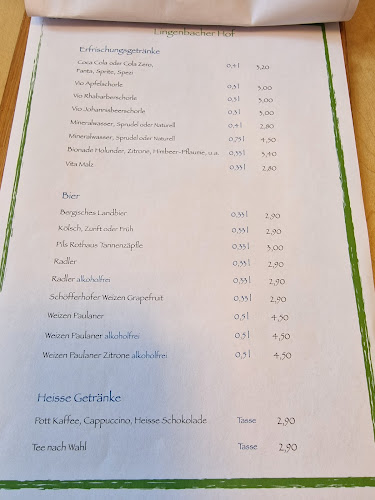 Lingenbacher Hof
Erfrischungsgetränke
Coca Cola oder Cola Zero,
Fanta, Sprite, Spezi 0,4 l 3,20
Vio Apfelschorle 0,3 l 3,00
Vio Rhabarberschorle 0,3 l 3,00
Vio Johannisbeerschorle 0,3 l 3,00
Mineralwasser, Sprudel oder Naturell 0,4 l 2,80
Mineralwasser, Sprudel oder Naturell 0,75 l 4,50
Bionade Holunder, Zitrone, Himbeer-Pflaume, u.a. 0,33 l 3,40
Vita Malz 0,33 l 2,80
Bier
Bergisches Landbier 0,33 l 2,90
Kölsch, Zunft oder Früh 0,33 l 2,90
Pils Rothaus Tannenzäpfle 0,33 l 3,00
Radler 0,33 l 2,90
Radler alkoholfrei 0,33 l 2,90
Schöfferhofer Weizen Grapefruit 0,33 l 2,90
Weizen Paulaner 0,5 l 4,50
Weizen Paulaner alkoholfrei 0,5 l 4,50
Weizen Paulaner Zitrone alkoholfrei 0,5 l 4,50
Heisse Getränke
Pott Kaffee, Cappuccino, Heisse Schokolade Tasse 2,90
Tee nach Wahl Tasse 2,90